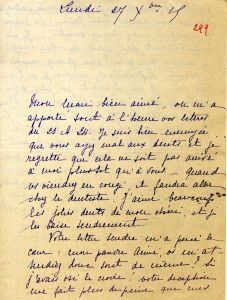 Lundi 27 Xbre 15
299
Mon mari bien aimé, on m'a
apporté tout à l'heure vos lettres
du 23 et 24. Je suis bien ennuyée
que vous ayez mal aux dents et je
regrette que cela ne soit pas arrivé
à moi plus tôt que à vous. Quand
vous viendrez en congé, il faudra aller
chez le dentiste. J'aime beaucoup
les jolies dents de mon et je
les baise tendrement.
Votre lettre tendre m'a percé le
cœur : mon pauvre aimé, on m'at-
de même, si
j'avais su le croire votre déception
me fait plus de peine que mes